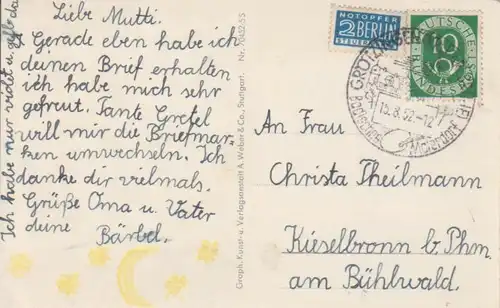 Liebe Mutti.
Gerade eben habe ich
deinen Brief erhalten
ich habe mich sehr
gefreut. Tante Gretel
will mir die Briefmar-
ken umwechseln. Ich
danke dir vielmals.
Grüße Oma u. Vater
deine
Bärbel.
Ich habe nur
Graph. Kunst- u. Verlagsanstalt A. Weber & Co., Stuttgart. Nr. 7042-55
NOTOPFER
2 BERLIN
STEUERMARKE
DEUTSCHE
10
BUNDESPOST
GRÖTZINGEN
15.8.52-12
An Frau
Christa Theilmann
Kieselbronn b. Phm.
am Bühlwald.